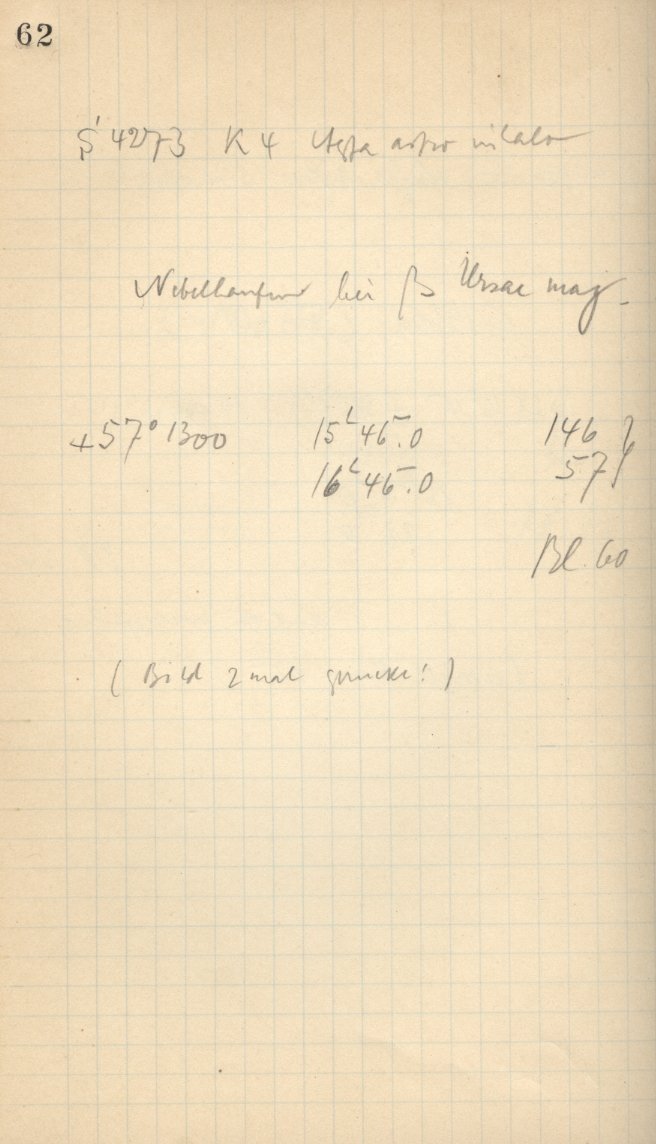 62
S 4273 K 4 Agfa astro
Nebelhaufen bei β Ursae maj.
+57° 1300 15ʰ 45.0 146
16ʰ 45.0 57
Bl. 60
( Bild 2 mal !)